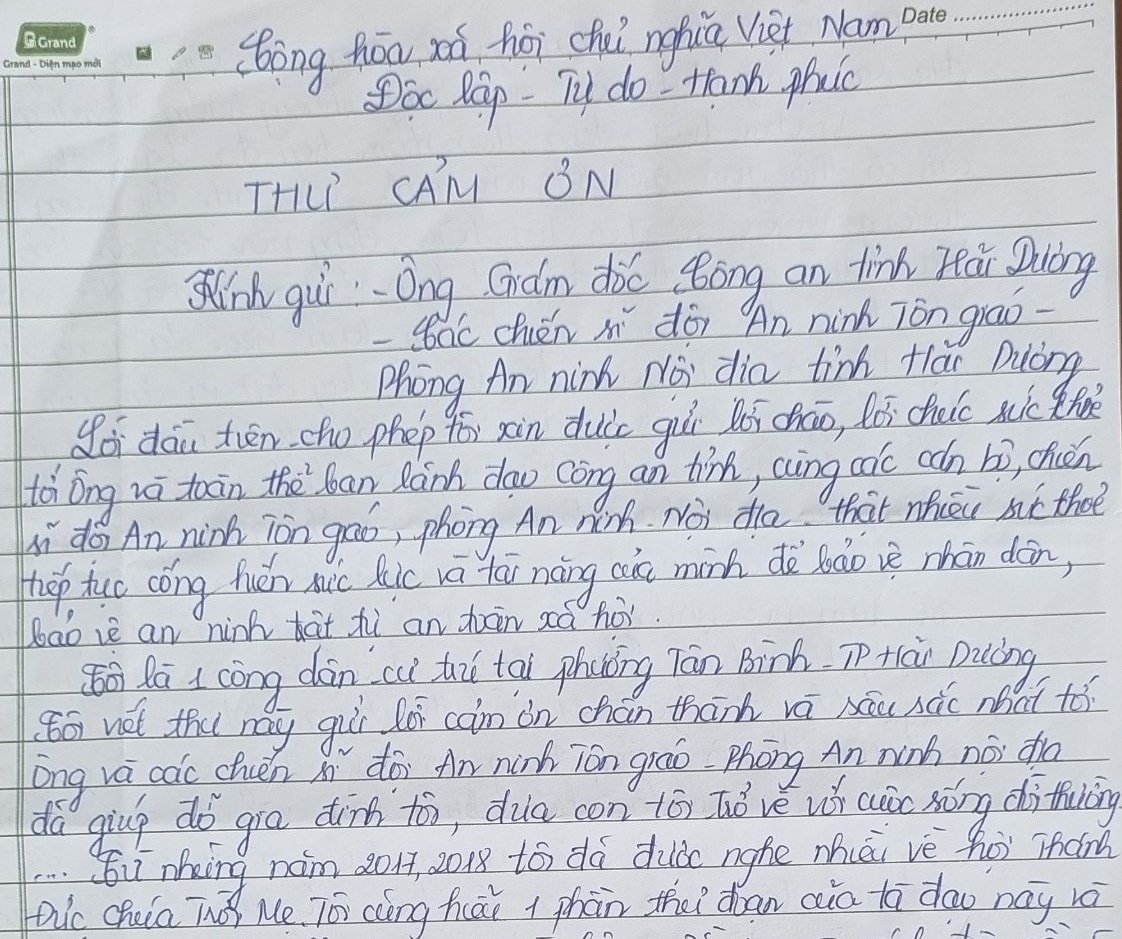 Grand
Grand - Diện mạo mới
Date
Cộng hòa xã hội chủ nghĩa Việt Nam
Độc lập - Tự do - Hạnh phúc
THƯ CẢM ƠN
Kính gửi: - Ông Giám đốc Công an tỉnh Hải Dương
- Các chiến sĩ đội An ninh Tôn giáo -
Phòng An ninh Nội địa tỉnh Hải Dương
Lời đầu tiên cho phép tôi xin được gửi lời chào, lời chúc sức khỏe
tới Ông và toàn thể ban lãnh đạo công an tỉnh, cùng các cán bộ, chiến
sĩ đội An ninh Tôn giáo, phòng An ninh Nội địa thật nhiều sức khỏe
tiếp tục cống hiến sức lực và tài năng của mình để bảo vệ nhân dân,
bảo vệ an ninh trật tự an toàn xã hội.
Tôi là 1 công dân cư trú tại phường Tân Bình - TP Hải Dương
Tôi viết thư này gửi lời cảm ơn chân thành và sâu sắc nhất tới
ông và các chiến sĩ đội An ninh Tôn giáo - Phòng An ninh nội địa
đã giúp đỡ gia đình tôi, đưa con tôi trở về với cuộc sống đời thường
... Từ những năm 2017, 2018 tôi đã được nghe nhiều về hội Thánh
Đức Chúa Trời Mẹ. Tôi cũng hiểu 1 phần thủ đoạn của tà đạo này và